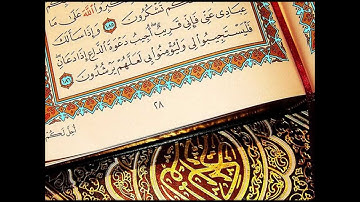 اللَّهَ عَلَىٰ مَا
تَشْكُرُونَ ﴿١٨٥﴾ وَإِذَا سَأَلَكَ
عِبَادِي عَنِّي فَإِنِّي قَرِيبٌ أُجِيبُ دَعْوَةَ الدَّاعِ إِذَا دَعَانِ
فَلْيَسْتَجِيبُوا لِي وَلْيُؤْمِنُوا بِي لَعَلَّهُمْ يَرْشُدُونَ ﴿١٨٦﴾
٢٨
أُحِلَّ لَكُمْ